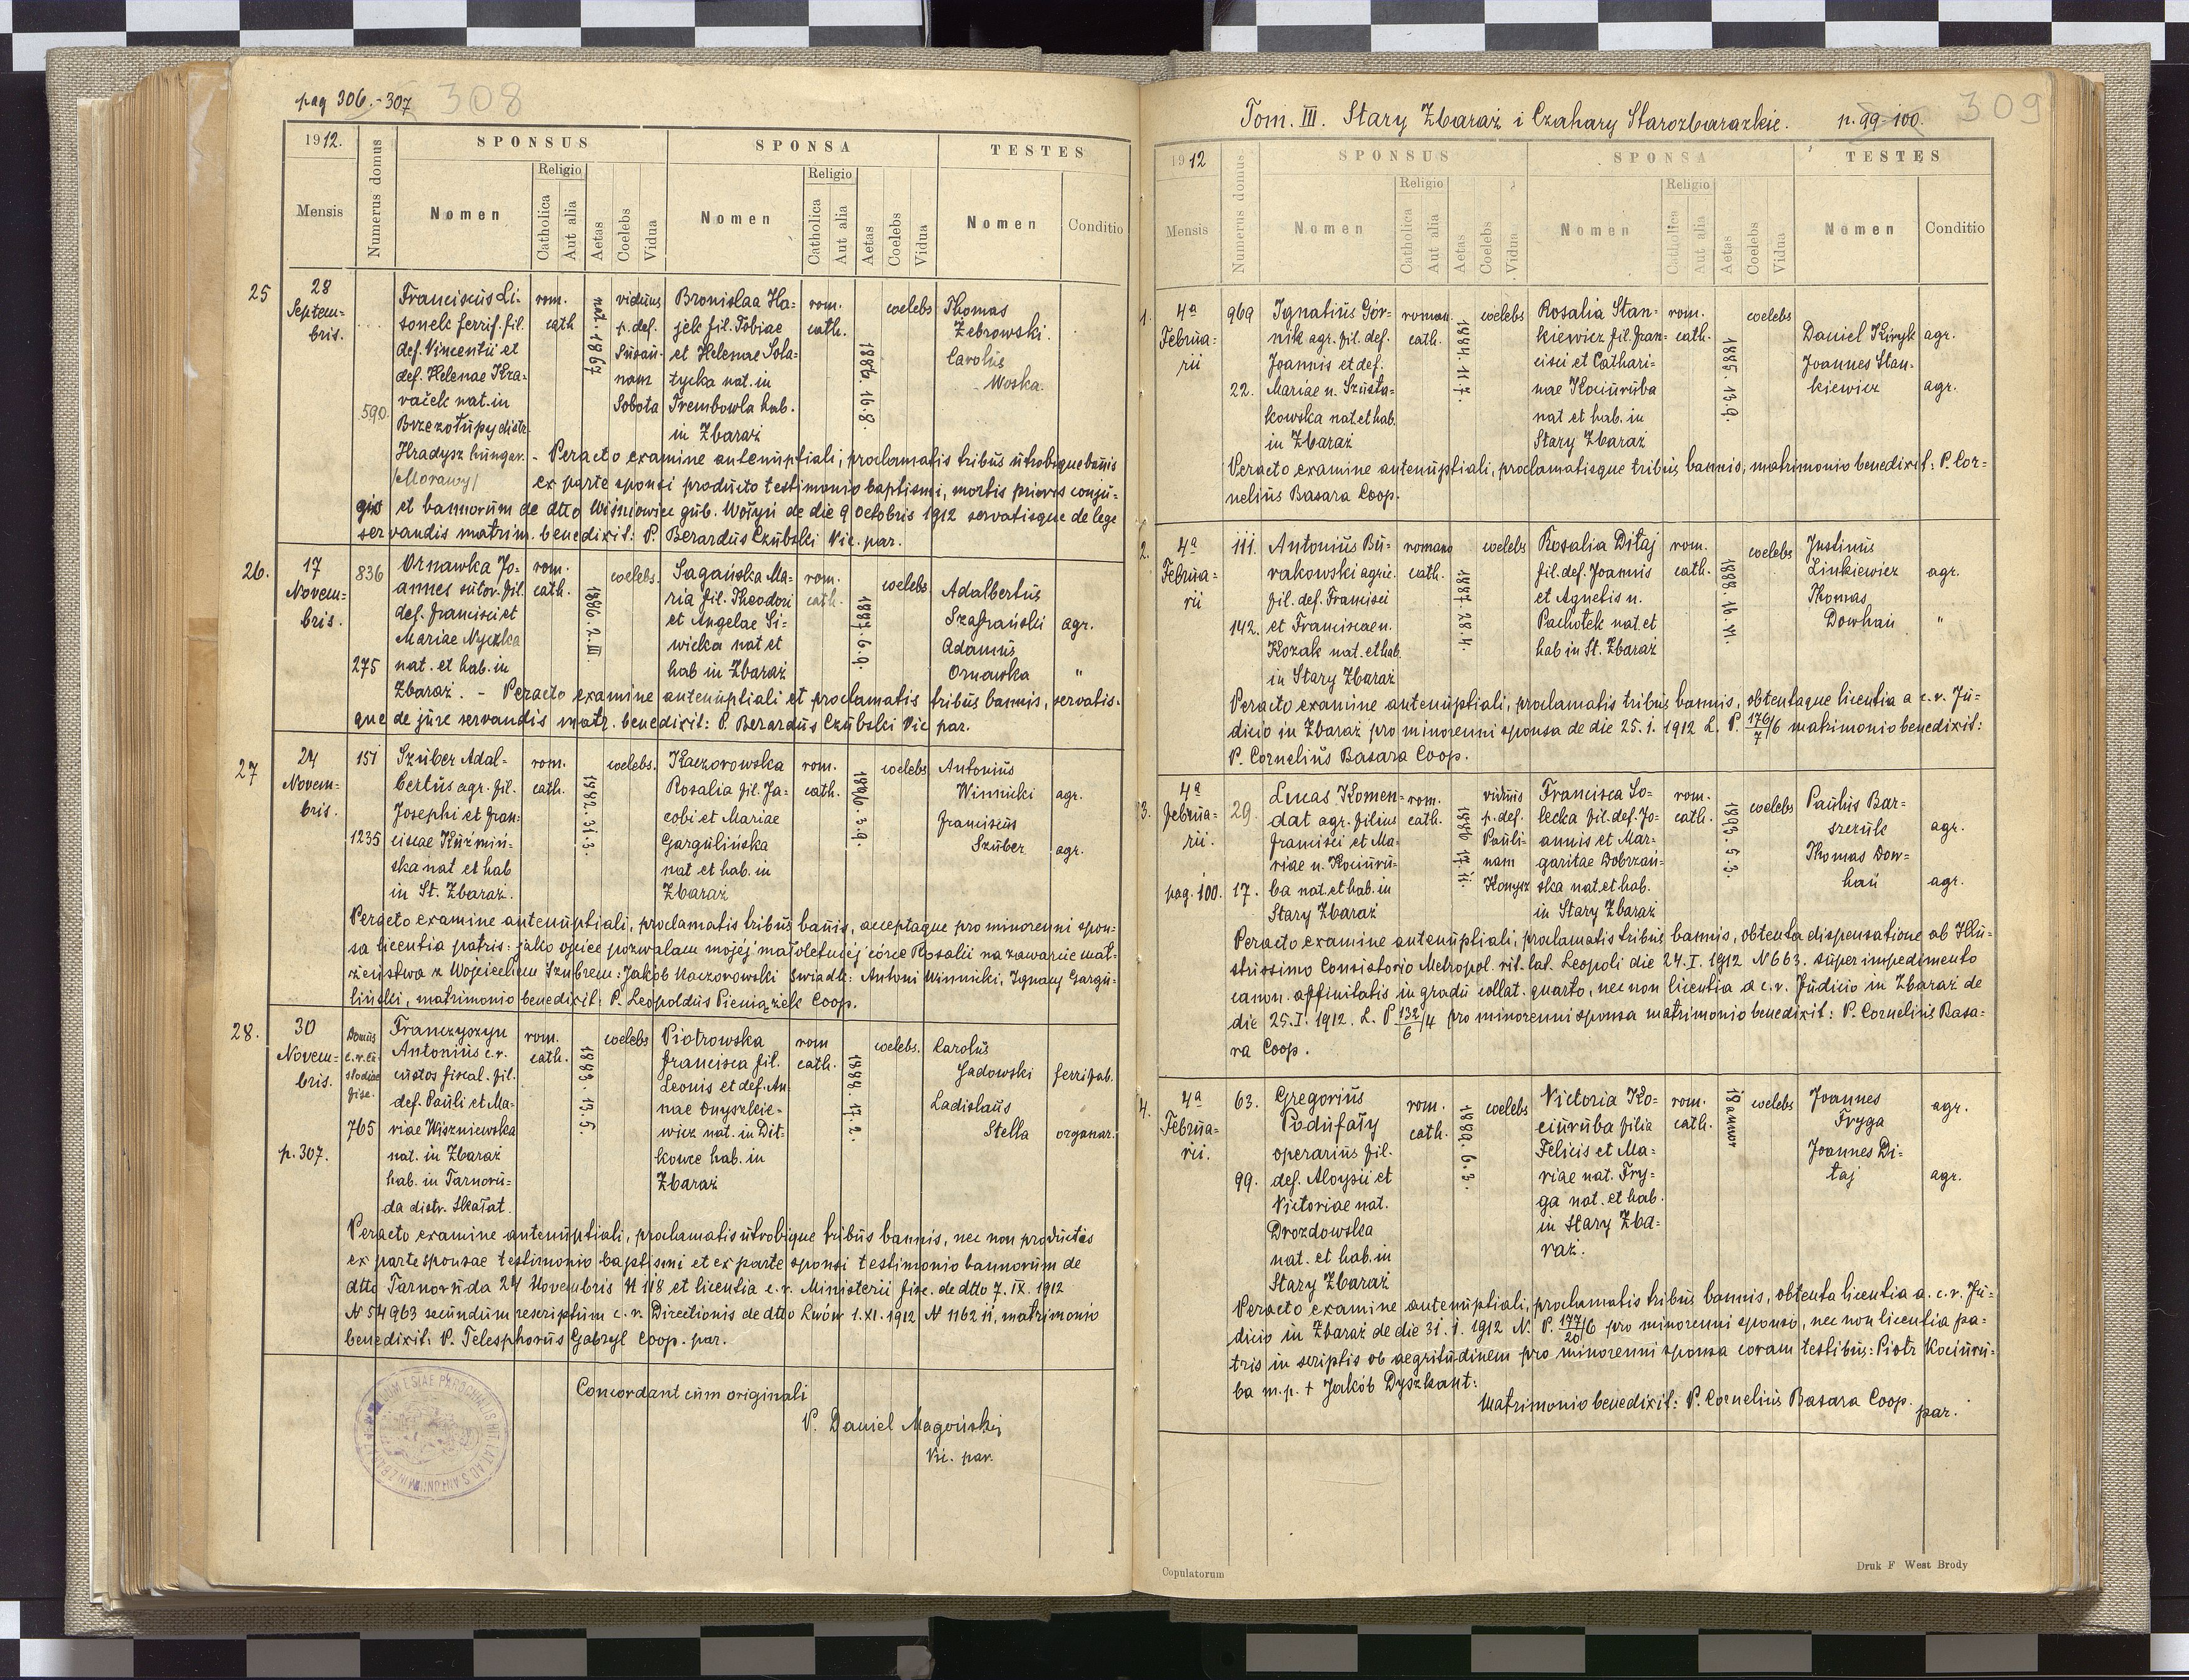 pag 306.-307 308
1912.
Mensis
Numerus domus
SPONSUS
Nomen
Religio
Catholica
Aut alia
Aetas
Coelebs
Vidua
SPONSA
Nomen
Religio
Catholica
Aut alia
Aetas
Coelebs
Vidua
TESTES
Nomen
Conditio
25
28
Septem-
bris.
590.
Franciscus Li-
sonek ferrif. fil.
def. Vincentii et
def. Helenae Kra-
vaček nat. in
Brzezołupy distr.
Hradysz hungar.
/Morawy/
rom.
cath
nat. 1867
viduus
p. def.
Susan-
nam
Sobota
Bronislaa Ha-
jek fil. Tobiae
et Helenae Sola-
tycka nat. in
Trembowla hab.
in Zbaraż
rom.
cath.
1886. 16. 8.
coelebs
Thomas
Żebrowski
Carolus
Woska.
- Peracto examine antenuptiali, proclamatis tribus utrobique banis
ex parte sponsi producto testimonio baptismi, mortis prioris conju-
gis et bannorum de dtto Wiśniowiec gub. Wołyń de die 9 octobris 1912 servatisque de lege
servandis matrim. benedixit: P. Berardus Czubski Vic. par.
26.
17
Novem-
bris.
836
275
Ornawka Jo-
annes sutor. fil.
def. Francisci et
Mariae Nyczka
nat. et hab. in
Zbaraż.
rom.
cath.
1886. 2. III.
coelebs.
Sagańska Ma-
ria fil. Theodori
et Angelae Si-
wicka nat et
hab in Zbaraż
rom.
cath.
1887. 6. 9.
coelebs
Adalbertus
Szafrański agr.
Adamus
Ornawska "
- Peracto examine antenuptiali et proclamatis tribus bannis, servatis-
que de jure servandis matr. benedixit: P. Berardus Czubski Vic par.
27
24
Novem-
bris.
151
1235
Szuber Adal-
bertus agr. fil.
Josephi et Fran-
ciscae Kuźmiń-
ska nat et hab
in St. Zbaraż.
rom.
cath.
1882. 31. 3.
coelebs.
Kaczorowska
Rosalia fil. Ja-
cobi et Mariae
Gargulińska
nat et hab. in
Zbaraż
rom.
cath.
1896. 3. 9.
coelebs
Antonius
Winnicki agr.
Franciscus
Szuber agr.
Peracto examine antenuptiali, proclamatis tribus banis, acceptaque pro minorenni spon-
sa licentia patris: jako ojciec pozwalam mojej małoletniej córce Rosalii na zawarcie mał-
żeństwa z Wojciechem Szubrem: Jakób Kaczorowski Świadk: Antoni Winnicki, Ignacy Gargu-
liński, matrimonio benedixit: P. Leopoldus Pieniążek Coop.
28.
30
Novem-
bris.
p. 307.
Domus
c. r. cu-
stodiae
fisc.
765
Franczyszyn
Antonius c. r.
custos fiscal. fil.
def. Pauli et Ma-
riae Wiszniewska
nat. in Zbaraż
hab. in Tarnoru-
da distr. Skałat.
rom.
cath.
1883. 13. 5.
coelebs
Piotrowska
Francisca fil.
Leonis et def. An-
nae Onyszkie-
wicz nat. in Dit-
kowce hab. in
Zbaraż
rom
cath.
1888. 17. 2.
coelebs.
Carolus
Gadowski ferrifab.
Ladislaus
Stella organar.
Peracto examine antenuptiali, proclamatis utrobique tribus bannis, nec non productis
ex parte sponsae testimonio baptismi et ex parte sponsi testimonio bannorum de
dtto Tarnoruda 24 Novembris N 118 et licentia c. r. Ministerii fisc. de dtto 7. IX. 1912
N 54963 secundum rescriptum c. r. Directionis de dtto Lwów 1. XI. 1912 N 116211, matrimonio
benedixit: P. Telesphorus Gabryl Coop. par.
Concordant cum originali
P. Daniel Magoński
Vic. par.
Tom. III. Stary Zbaraż i Czahary Starozbarazkie. p. 99-100. 309
1912
Mensis
Numerus domus
SPONSUS
Nomen
Religio
Catholica
Aut alia
Aetas
Coelebs
Vidua
SPONSA
Nomen
Religio
Catholica
Aut alia
Aetas
Coelebs
Vidua
TESTES
Nomen
Conditio
1.
4a
Februa-
rii
969
22.
Ignatius Gór-
nik agr. fil. def.
Joannis et def.
Mariae n. Szusta-
kowska nat. et hab.
in Zbaraż
roman.
cath.
1884. 11. 7.
coelebs
Rosalia Stan-
kiewicz fil. Fran-
cisci et Cathari-
nae Kociuruba
nat et hab. in
Stary Zbaraż
rom.
cath.
1885. 13. 9.
coelebs
Daniel Kiryk agr.
Joannes Stan-
kiewicz agr.
Peracto examine antenuptiali, proclamatisque tribus bannis, matrimonio benedixit: P. Cor-
nelius Basara Coop.
2.
4a
Februa-
rii
111.
142.
Antonius Bu-
rakowski agric.
fil. def. Francisci
et Franciscae n.
Kozak nat. et hab.
in Stary Zbaraż
romano
cath.
1887. 28. 4.
coelebs
Rosalia Ditaj
fil. def. Joannis
et Agnetis n.
Pachołek nat. et
hab in St. Zbaraż
rom.
cath.
1888. 16. XI.
coelebs
Justinus
Linkiewicz agr.
Thomas
Dowhań "
Peracto examine antenuptiali, proclamatis tribus bannis, obtentaque licentia a c. r. Ju-
dicio in Zbaraż pro minorenni sponsa de die 25. 1. 1912 L. P. 176/7/6 matrimonio benedixit:
P. Cornelius Basara Coop.
3.
4a
Februa-
rii.
pag. 100.
29.
17.
Lucas Komen-
dat agr. filius
Francisci et Ma-
riae n. Kociuru-
ba nat. et hab. in
Stary Zbaraż
rom.
cath.
viduus
p. def.
Pauli-
nam
Konysz
Francisca So-
lecka fil. def. Jo-
annis et Mar-
garitae Dobrzań-
ska nat. et hab.
in Stary Zbaraż
rom.
cath.
1893. 5. 3.
coelebs
Paulus Bar-
szczuk agr.
Thomas Dow-
hań agr.
Peracto examine antenuptiali, proclamatis tribus bannis, obtenta dispensatione ab Illu-
strissimo Consistorio Metropol. rit. lat. Leopoli die 24. I. 1912 N 663. super impedimento
canon. affinitatis in gradu collat. quarto, nec non licentia a c. r. Judicio in Zbaraż de
die 25. I. 1912. L. P 132/6/4 pro minorenni sponsa matrimonio benedixit: P. Cornelius Basa-
ra Coop.
4.
4a
Februa-
rii.
63.
99.
Gregorius
Podufały
operarius fil.
def. Aloysii et
Victoriae nat.
Drozdowska
nat. et hab. in
Stary Zbaraż
rom.
cath.
1889. 6. 3.
coelebs
Victoria Ko-
ciuruba filia
Felicis et Ma-
riae nat. Fry-
ga nat. et hab.
in Stary Zba-
raż.
rom.
cath.
18 annor
coelebs
Joannes agr.
Fryga
Joannes Di-
taj agr.
Peracto examine antenuptiali, proclamatis tribus bannis, obtenta licentia a. c. r. Ju-
dicio in Zbaraż de die 31. 1. 1912 N. P. 177/20/6 pro minorenni sponso, nec non licentia pa-
tris in scriptis ob aegritudinem pro minorenni sponsa coram testibus: Piotr Kociuru-
ba m.p. + Jakób Dyszkant:
Matrimonio benedixit: P. Cornelius Basara Coop.
par.
Copulatorum
Druk F West Brody